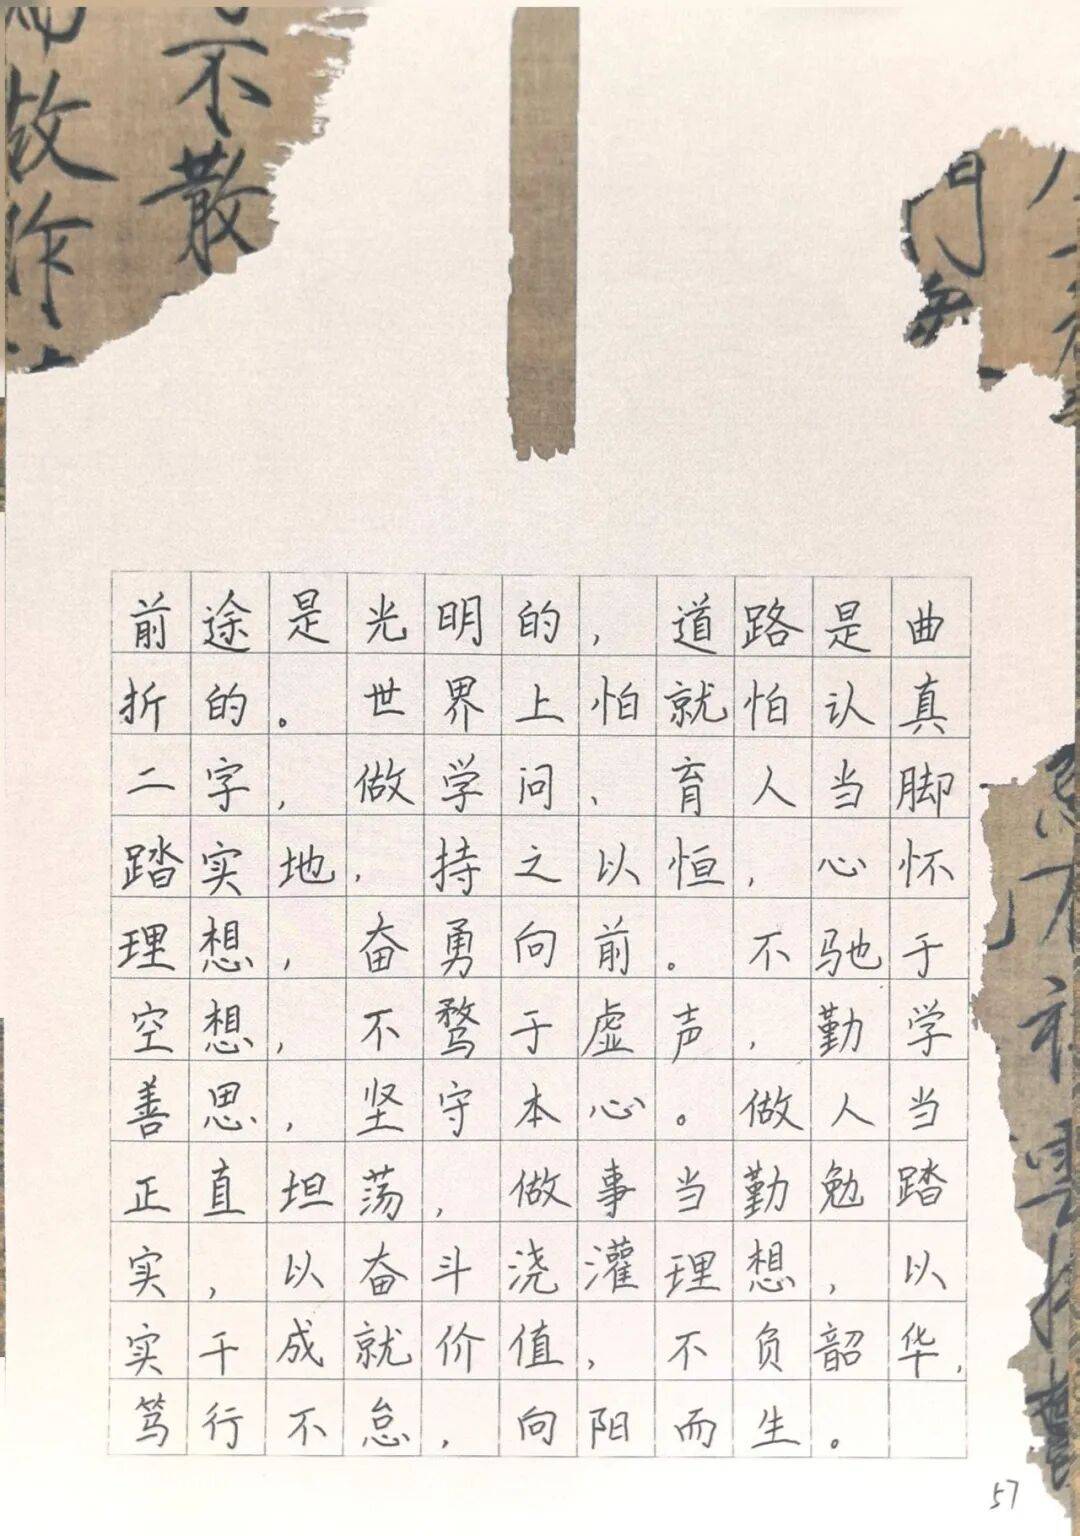 不散
故作
門
前途是光明的，道路是曲
折的。世界上怕就怕认真
二字，做学问、育人当脚
踏实地，持之以恒，心怀
理想，奋勇向前。不驰于
空想，不骛于虚声，勤学
善思，坚守本心。做人当
正直坦荡，做事当勤勉踏
实，以奋斗浇灌理想，以
实干成就价值，不负韶华，
笃行不怠，向阳而生。
57